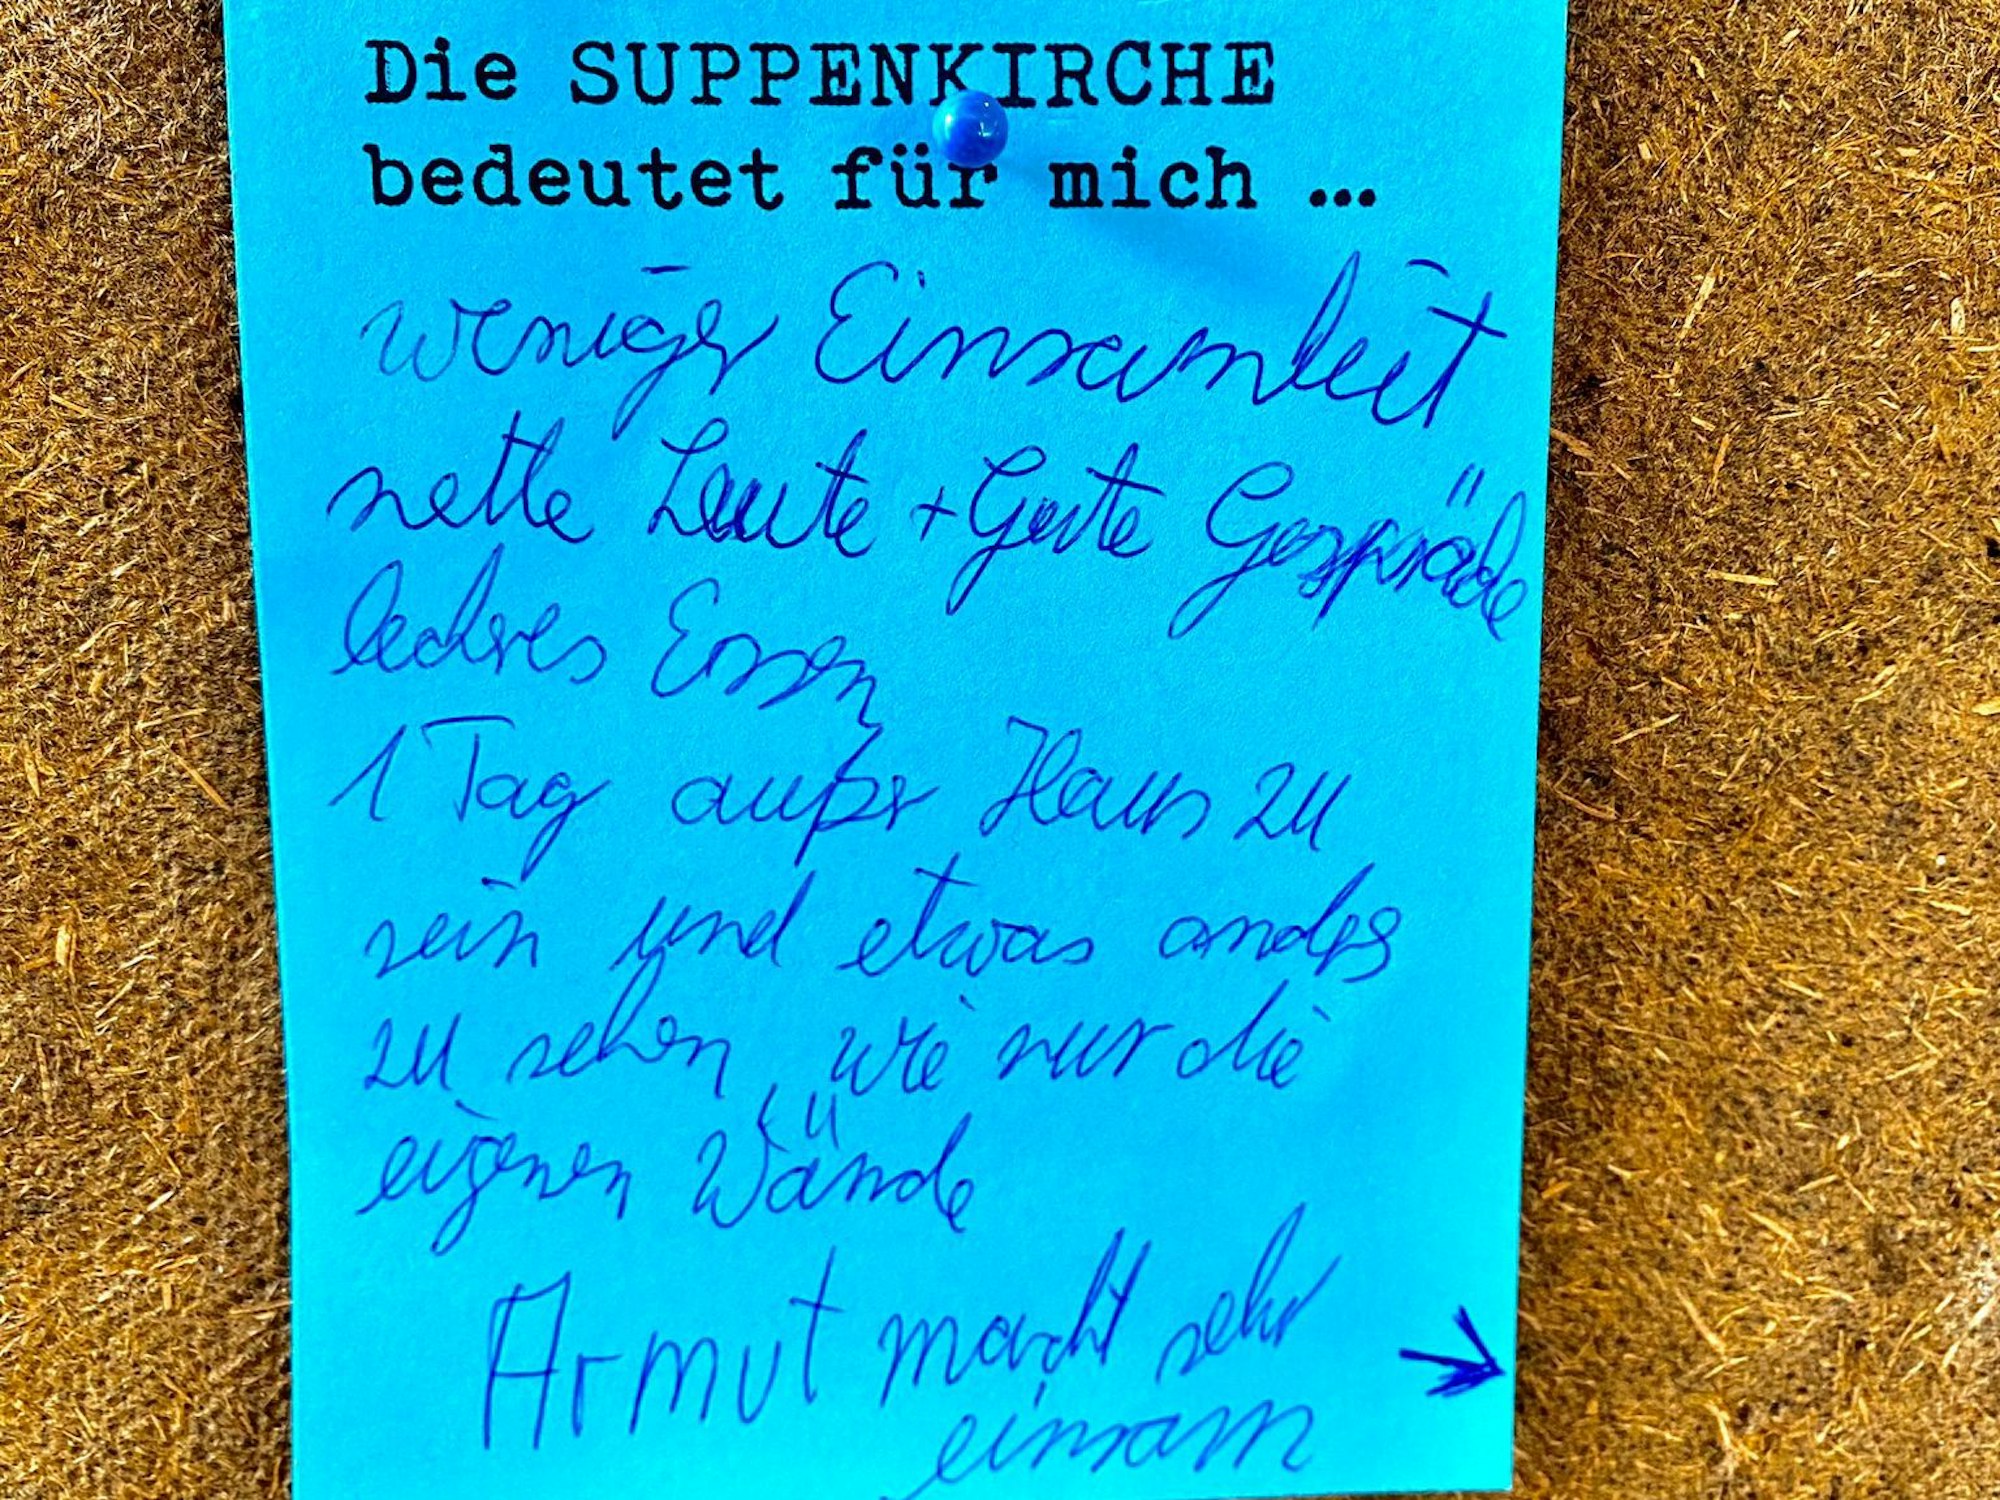 Die SUPPENKIRCHE
bedeutet für mich ...
weniger Einsamkeit
nette Leute + Gute Gespräche
leckres Essen
1 Tag außer Haus zu
sein und etwas andres
zu sehen, wie nur die
eigenen Wände
Armut macht sehr
einsam